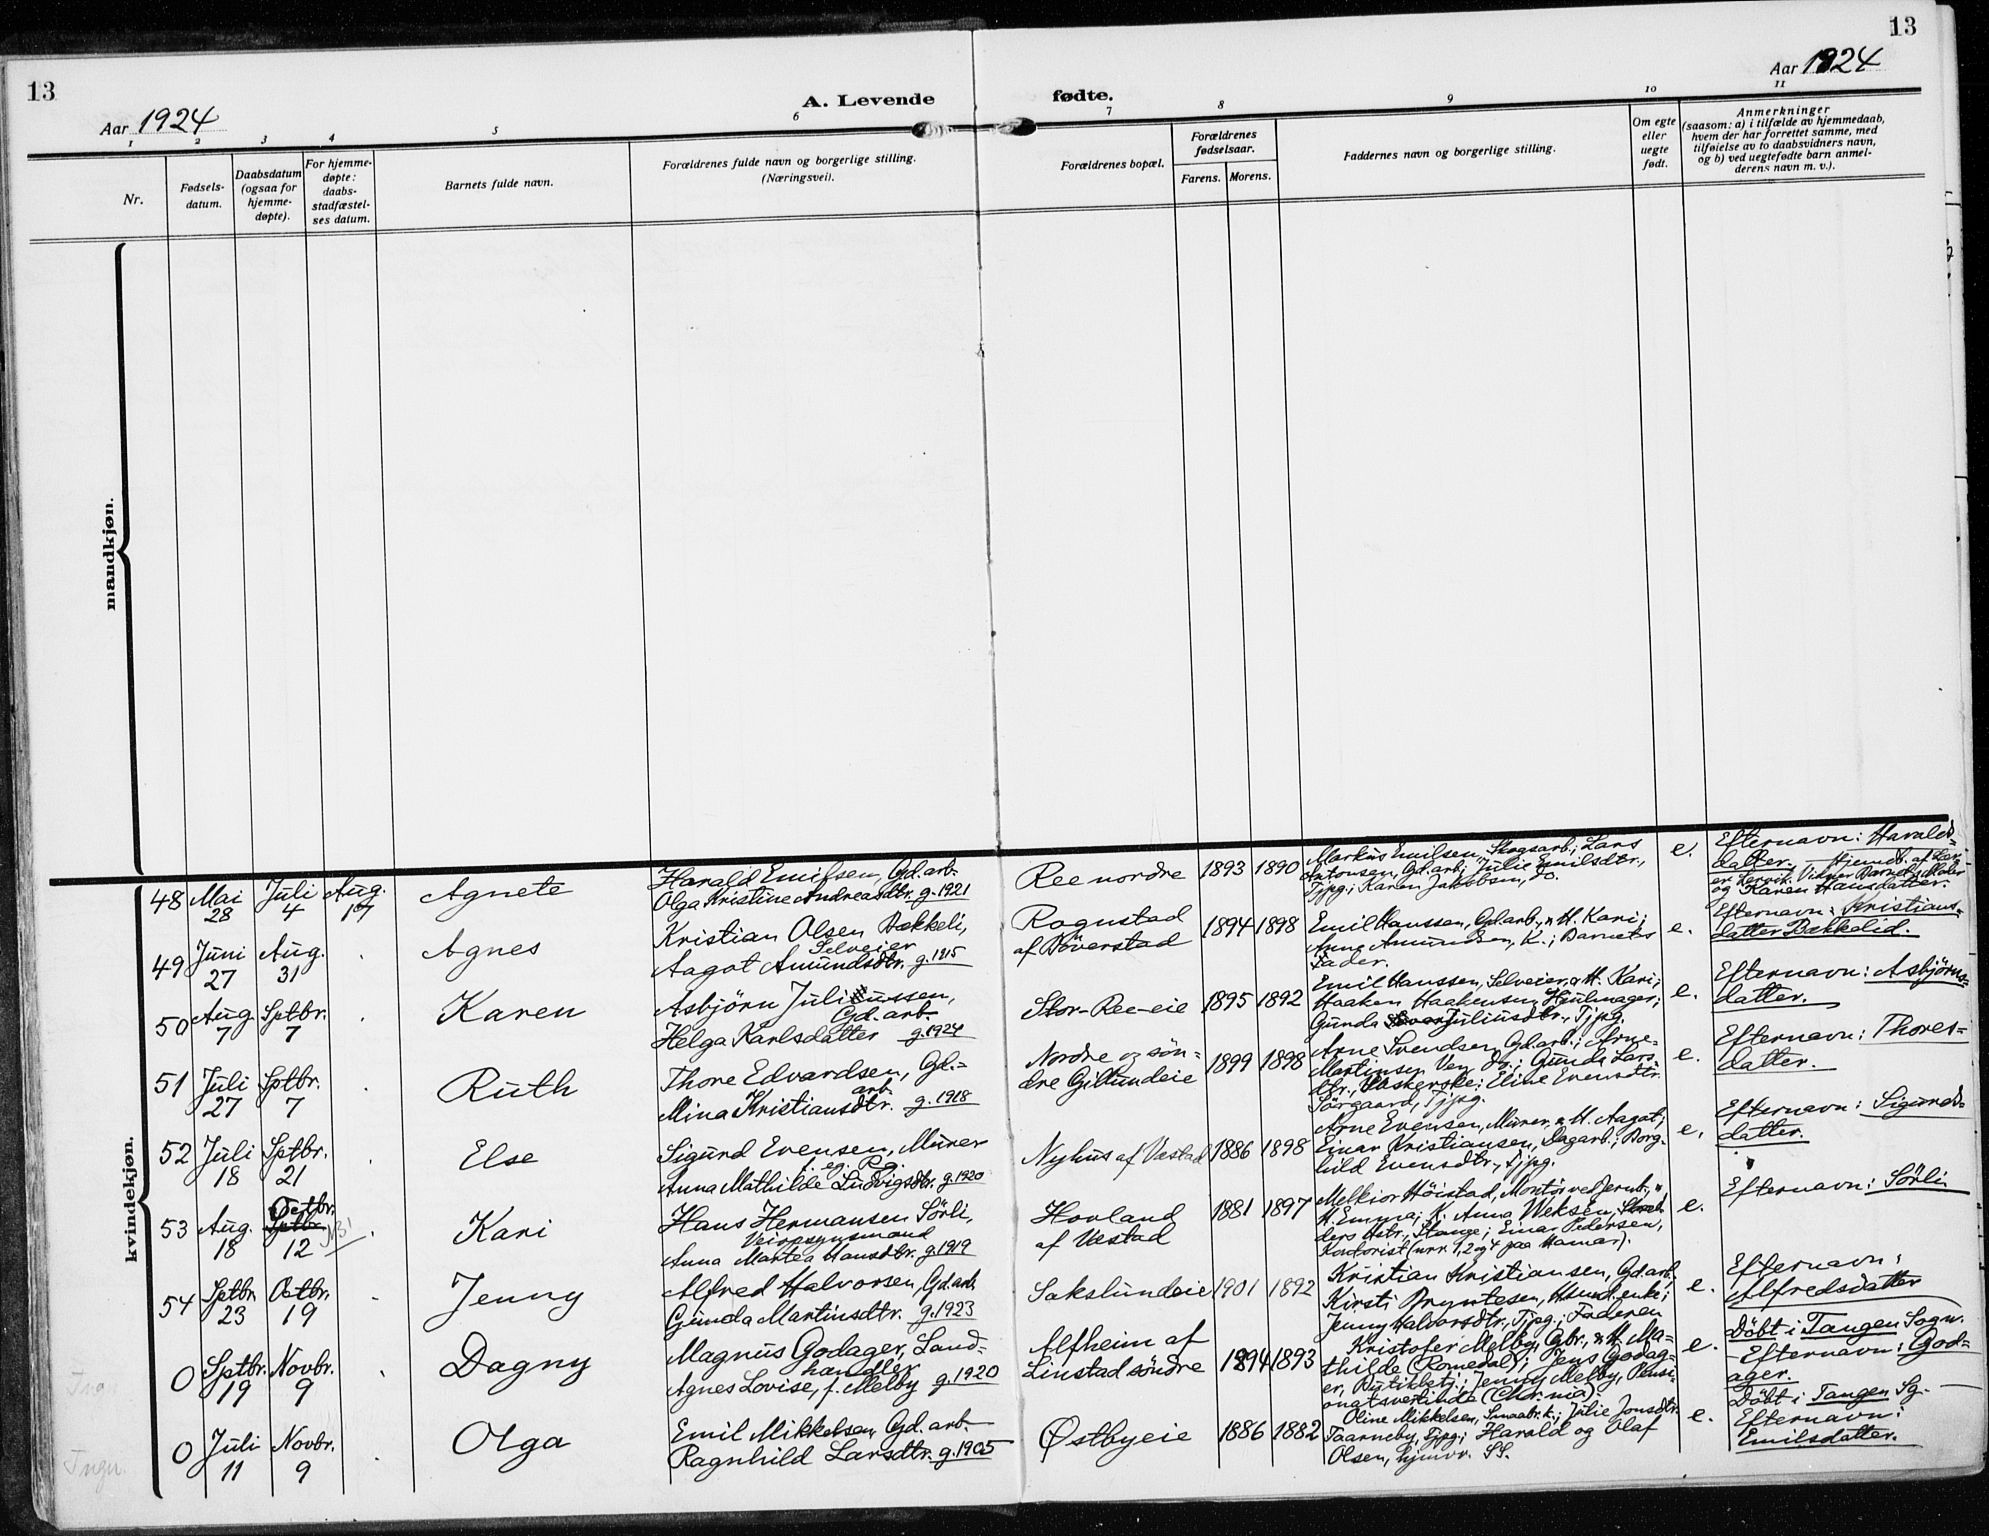 13
13
Aar 1924
A. Levende
fødte.
Aar 1924
1 2 3 4 5 6 7 8 9 10 11
Nr.
Fødsels-
datum.
Daabsdatum
(ogsaa for
hjemme-
døpte).
For hjemme-
døpte:
daabs-
stadfæstel-
ses datum.
Barnets fulde navn.
Forældrenes fulde navn og borgerlige stilling.
(Næringsvei).
Forældrenes bopæl.
Forældrenes
fødselsaar.
Farens. Morens.
Faddernes navn og borgerlige stilling.
Om egte
eller
uegte
født.
Anmerkninger
(saasom: a) i tilfælde av hjemmedaab,
hvem der har forrettet samme, med
tilføielse av to daabsvidners navn,
og b) ved uegtefødte barn anmel-
derens navn m. v.).
mandkjøn.
kvindekjøn.
48 Mai 28
Juli 4
Aug. 17
Agnete
Harald Emilsen, Gd.arb.
Olga Kristine Andreasdtr. g. 1921
Ree nordre
1893 1890
Markus Emilsen, Skogsarb.; Lars
Antonsen, Gd.arb; Julie Emilsdtr.,
Tjpg.; Karen Jakobsen, do.
e.
Efternavn: Haralds-
datter. Hjemdb. af
Vidner Barnets Moder
og Karen Hansdatter.
49 Juni 27
Aug. 31
Agnes
Kristian Olsen Bækkeli,
Selveier
Aagot Amundsdtr. g. 1915
Rognstad
af Böverstad
1894 1898
Emil Hanssen, Gd.arb., & H. Kari;
Anne Amundsen, K.; Barnets
Fader.
e.
Efternavn: Kristians-
datter Bækkelid.
50 Aug. 7
Sptbr. 7
Karen
Asbjörn Juliussen,
Gd.arb.
Helga Karlsdatter g. 1924
Stor-Ree-eie
1895 1892
Emil Hanssen, Selveier, & H. Kari;
Haaken Haakensen, Hjulmager;
Gunda Juliusdtr., Tjpg.
e.
Efternavn: Asbjörns-
datter.
51 Juli 27
Sptbr. 7
Ruth
Thore Edvardsen, Gd.-
arb.
Mina Kristiansdtr. g. 1918
Nordre og sön-
dre Gillundeie
1899 1898
Arne Svendsen, Gd.arb.; Arne
Martinsen Ven, do.; Gunda Lars-
dtr., Væskerske; Eline Evensdtr.
Sörgaard, Tjpg.
e.
Efternavn: Thores-
datter.
52 Juli 18
Sptbr. 21
Else
Sigurd Evensen, Murer
Anna Mathilde Ludvigsdtr. g. 1920
Nyhus af Vestad
1886 1898
Arne Evensen, Murer, & H. Aagot;
Einar Kristiansen, Dagarb.; Borg-
hild Evensdtr., Tjpg.
e.
Efternavn: Sigurds-
datter.
53 Aug. 18
Octbr.
Sptbr. 12
NB!
Kari
Hans Hermansen Sörli,
Veiopsynsmand
Anna Martea Hansdtr. g. 1919
Hovland
af Vestad
1881 1897
Melkior Höistad, Montör ved Jernb., &
H. Emma; K. Anna
Stange; Einar Pedersen,
Kontorist (nrr. 1, 2 og 4 paa Hamar).
e.
Efternavn: Sörli
54 Sptbr. 23
Octbr. 19
Jenny
Alfred Halvorsen, Gd.arb.
Gunda Martinsdtr. g. 1923
Sakslundeie
1901 1892
Kristian Kristiansen, Gd.arb.
Kirsti Bryntesen, Husmd.enke;
Jenny Halvorsdtr., Tjpg.; Faderen
e.
Efternavn:
Alfredsdatter
0 Sptbr. 19
Novbr. 9
Dagny
Magnus Godager, Land-
handler
Agnes Lovise, f. Melby g. 1920
Alfheim af
Linstad söndre
1894 1893
Kristofer Melby, Gbr., & H. Ma-
thilde (Romedal); Jens Godag-
er, Butikbetj.; Jenny Melby, Pensi-
onatsvertinde (Chr.nia).
e.
Döbt i Tangen Sogn.
- Efternavn: God-
ager.
0 Juli 11
Novbr. 9
Olga
Emil Mikkelsen, Gd.arb.
Ragnhild Larsdtr. g. 1905
Østbyeie
1886 1882
Oline Mikkelsen, Smaabr.k.; Julie Jonsdtr.
Taarneby, Tjpg.; Harald og Olaf
Olsen, hjmvr. SS.
e.
Döbt i Tangen Sg. -
Efternavn:
Emilsdatter.
Tngn.
Tngn.